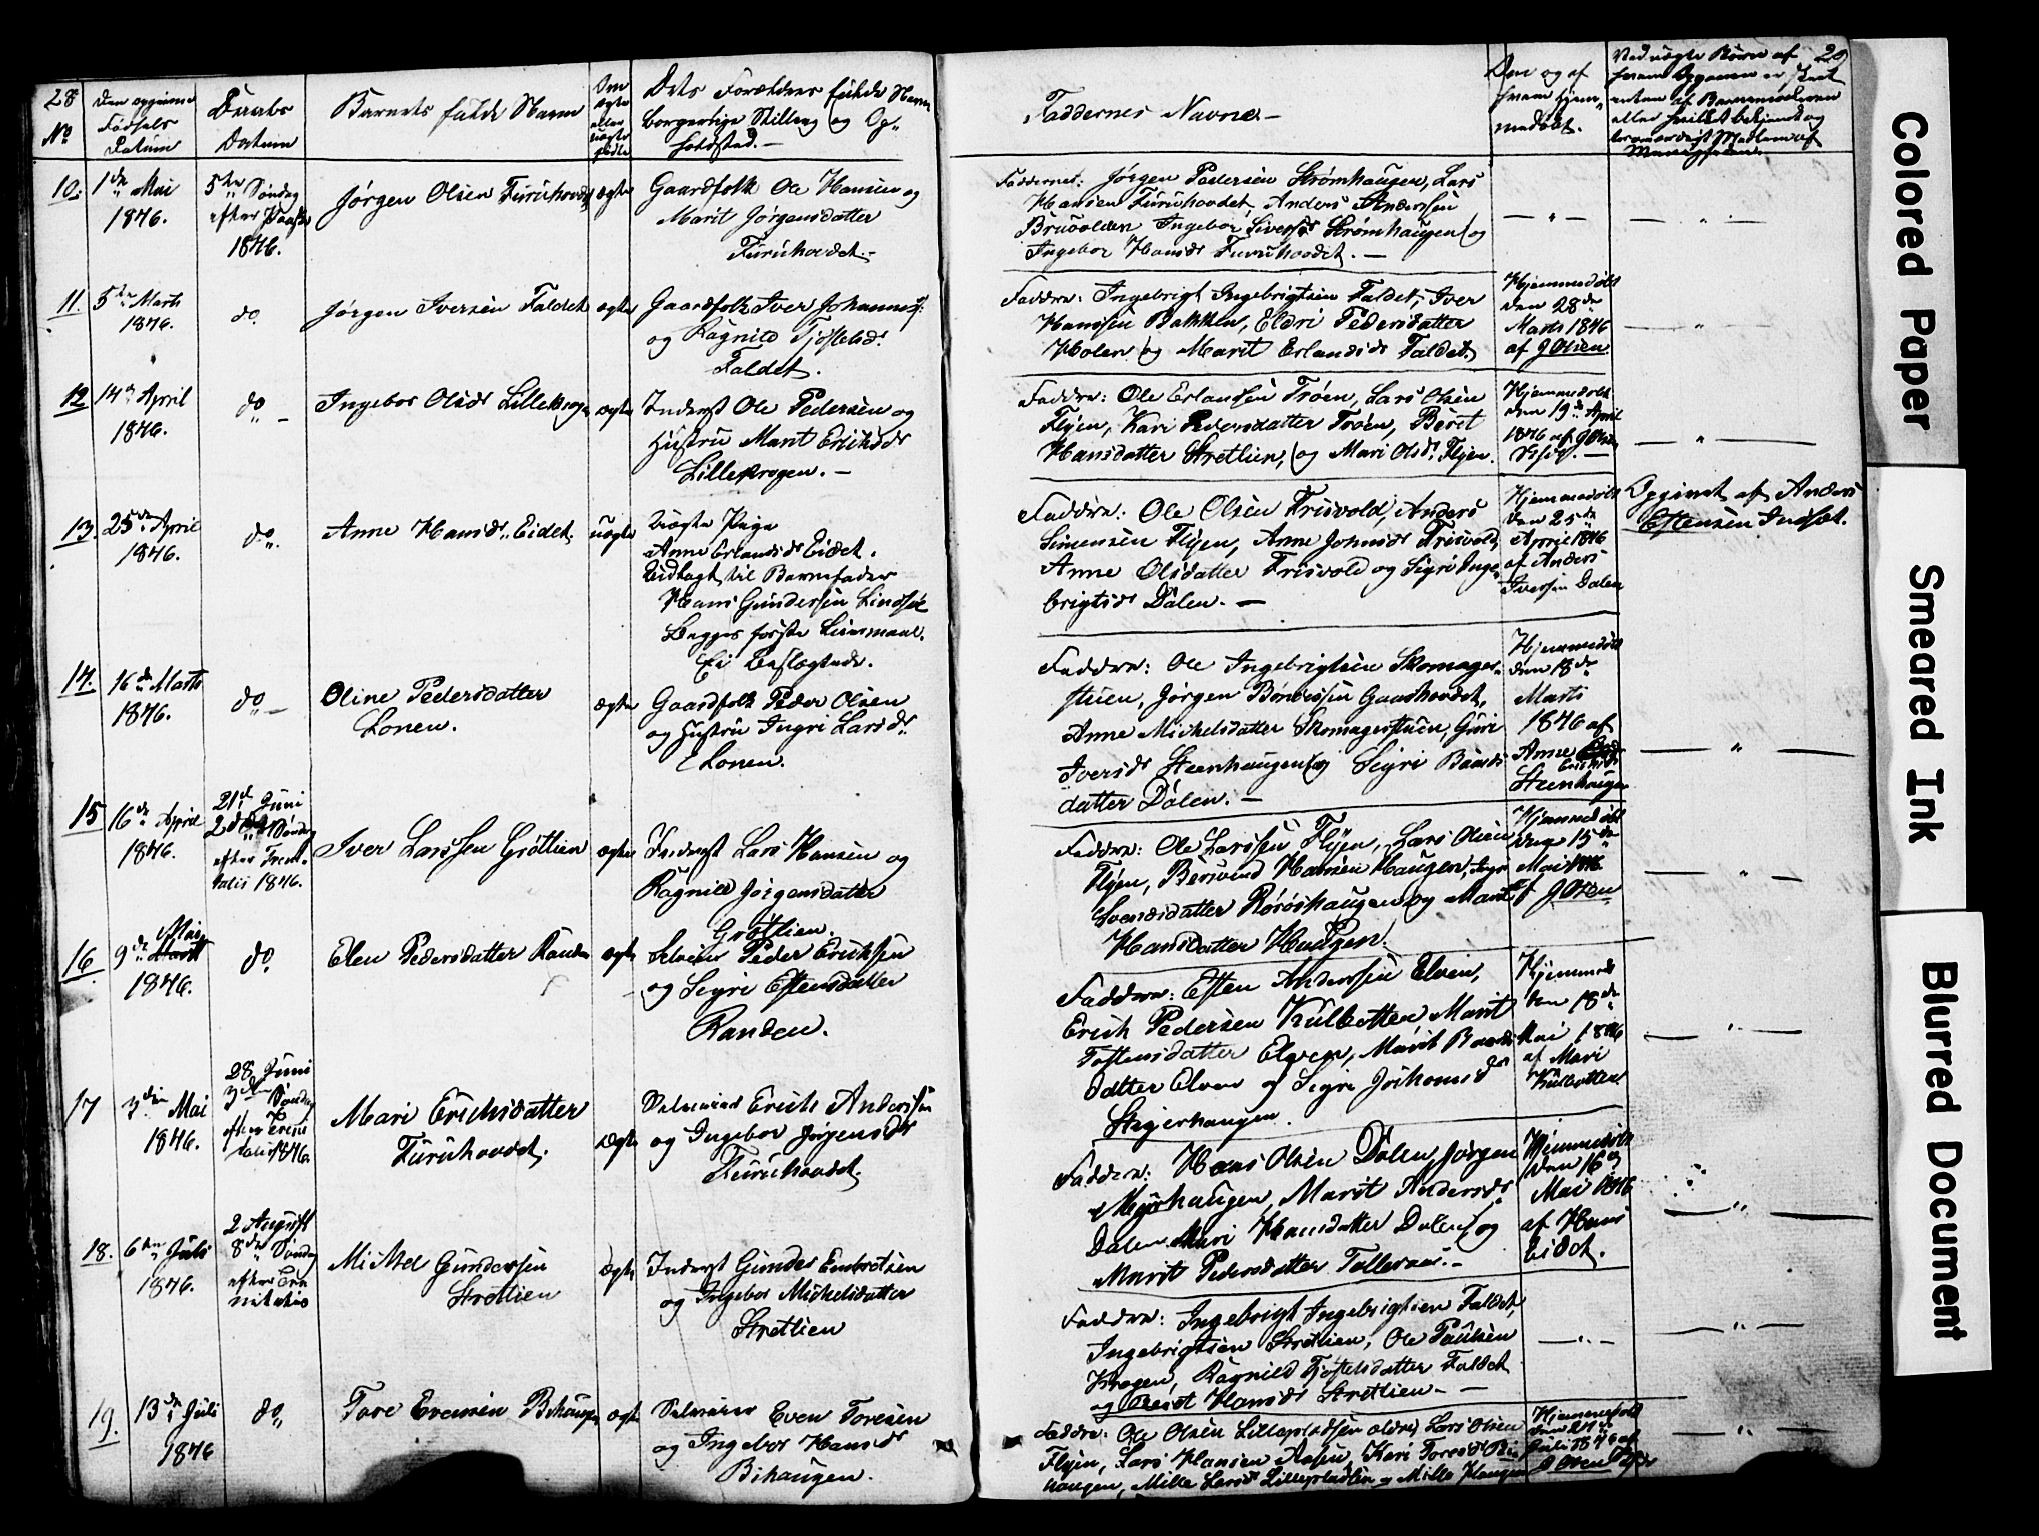 28
No
Den opgivne
Fødsels
Datum
Daabs
Datum
Barnets fulde Navn
Om
ægte
eller
uægte
fødte
Dets Forældres fulde Navn
borgerlige Stilling og Op-
holdsted.
10.
1de Mai
1846.
5te Søndag
efter Paaske
1846.
Jørgen Olsen Furuhovdet
ægte
Gaardfolk Ole Hansen og
Marit Jørgensdatter
Furuhovdet.
11.
5te Marts
1846.
do.
Jørgen Iversen Faldet
ægte
Gaardfolk Iver Johannes:
og Ragnild
Faldet.
12
14de April
1846.
do
Ingebor Olsdr Lillekrogen
ægte
Inderst Ole Pedersen og
Hustru Marit Eriksdr
Lillekrogen.
13.
25de April
1846.
do.
Anne Hansdr. Eidet.
uægte
Uægte Pige
Anne Erlandsdr Eidet.
Udlagt til Barnefader
Hans Gundersen
Begges første Leiermaal.
Ei beslægtede.
14.
16de Marts
1846.
do
Oline Pedersdatter
Lonen.
ægte
Gaardfolk Peder Olsen
og Hustru Ingri Larsdr.
Lonen.
15
16de April
1846.
21de Juni
2den Søndag
efter Trini-
tatis 1846.
Iver Larssen Grøtlien
ægte
Inderst Lars Hansen og
Ragnild Jørgensdatter
Grøtlien.
16.
Mai
9de Marts
1846.
do.
Elen Pedersdatter Randen
ægte
Selveier Peder Eriksen
og Sigri Estensdatter
Randen.
17
3die Mai
1846.
28 Juni
3die Søndag
efter Trini
tatis 1846.
Mari Erichsdatter
Furuhovdet.
ægte
Selveier Erich Anderssen
og Ingebor Jørgensdr
Furuhovdet.
18.
6te Juli
1846.
2 August
8de Søndag
efter Tri
nitatis
Mickel Gunderssen
Stretlien
ægte
Inderst Gunder Embretsen
og Ingebor Mickelsdatter
Stretlien
19.
13de Juli
1846
do
Tore Evensen Bihaugen
ægte
Selveier Even Toresen
og Ingebor Hansdr
Bihaugen.
29
Faddernes Navne.
Om og af
hvem hjem-
medøbt.
Ved uægte Børn af
hvem Opgaven er skeet
enten af Barnemoderen
eller hvilket bekjendt og
troværdigt Medlem af
Menigheden.
Faddernes: Jørgen Pedersen Strømhaugen, Lars
Hansen Furuhovdet, Anders Anderssen
Bruvolden Ingebor Siversdr Strømhaugen og
Ingebor Hansdr Furuhovdet.
Faddre: Ingebrigt Ingebrigtsen Faldet, Iver
Hanssen Bakken, Eldri Pedersdatter
Holen og Marit Erlandsdr Faldet.
Hjemmedøbt
den 28de
Marts 1846
af J Olsen.
Faddre: Ole Erlandsen Trøen, Lars Olsen
Flyen, Kari Pedersdatter Trøen, Beret
Hansdatter Stretlien, og Mari Olsdr. Flyen.
Hjemmedøbt
den 19de April
1846 af J Olsen
Faddre: Ole Olsen Frisvold, Anders
Simensen Flyen, Anne Johnsdr Frisvold,
Anne Olsdatter Frisvold og Sigri Inge-
brigtsdr Dalen.
Hjemmedøbt
den 25de
April 1846
af Anders
Iversen Dalen
Opgivet af Anders
Estensen Indset.
Faddre: Ole Ingebrigtsen Skomager-
stuen, Jørgen Gaashovdet,
Anne Mickelsdatter Skomagerstuen, Guri
Iversdr Steenhaugen og Sigri Baards
datter Dalen.
Hjemmedøbt
den 18de
Marts
1846 af
Anne
Steenhaugen
Faddre: Ole Larssen Flyen, Lars Olsen
Flyen, Bersvend Hansen Haugen, Ingr
Svendsdatter Rørøshaugen og Marit
Hansdatter Haugen.
Hjemmedøbt
den 15de
Mai 1846
af J Olsen
Faddre: Esten Anderssen Elven,
Erich Pedersen Kulbotten Marit
Tostensdatter Elven, Marit Baards
datter Elven og Sigri
Steyerhaugen.
Hjemmed
den 18de
Mai 1846
af Mari
Kulbotten
Faddre: Hans Olsen Dalen, Jørgen
Myrhaugen, Marit Andersdr
Dalen Mari Hansdatter Dalen, og
Marit Pedersdatter Telleraas.
Hjemmedøbt
den 16de
Mai 1846
af Hans
Eidet.
Faddre: Ingebrigt Ingebrigtsen Faldet,
Ingebrigtsen Stretlien, Ole Paulsen
Krogen, Ragnild Faldet
og Beret Hansdr Stretlien.
Faddre: Ole Olsen Lillepladsen ældre, Lars Olsen
Flyen, Lars Hansen Aasen, Kari Toresdr Bi
haugen, Mille Larsdr Lillepladsen og Mille Haugen
Hjemmedøbt
den 24de
Juli 1846 af
J Olsen
Colored Paper
Smeared Ink
Blurred Document